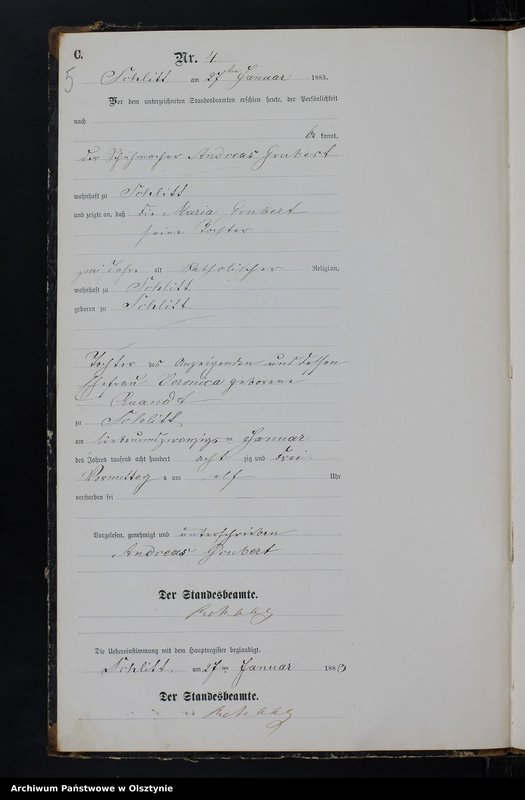 C.
Nr. 4
5
Schlitt am 27ten Januar 1883.
Vor dem unterzeichneten Standesbeamten erschien heute, der Persönlichkeit
nach
be kannt,
der Andreas Grubert
wohnhaft zu Schlitt
und zeigte an, daß die Maria Grubert
seine Tochter
zwei Jahre alt katholischer Religion,
wohnhaft zu Schlitt
geboren zu Schlitt
Tochter des Anzeigenden und dessen
Ehefrau Veronica geborene
zu Schlitt
am siebenundzwanzigsten Januar
des Jahres tausend acht hundert acht zig und drei
Vormittags um elf Uhr
verstorben sei
Vorgelesen, genehmigt und unterschrieben
Andreas Grubert
Der Standesbeamte.
Die Uebereinstimmung mit dem Hauptregister beglaubigt.
Schlitt am 27ten Januar 1883
Der Standesbeamte.
Archiwum Państwowe w Olsztynie